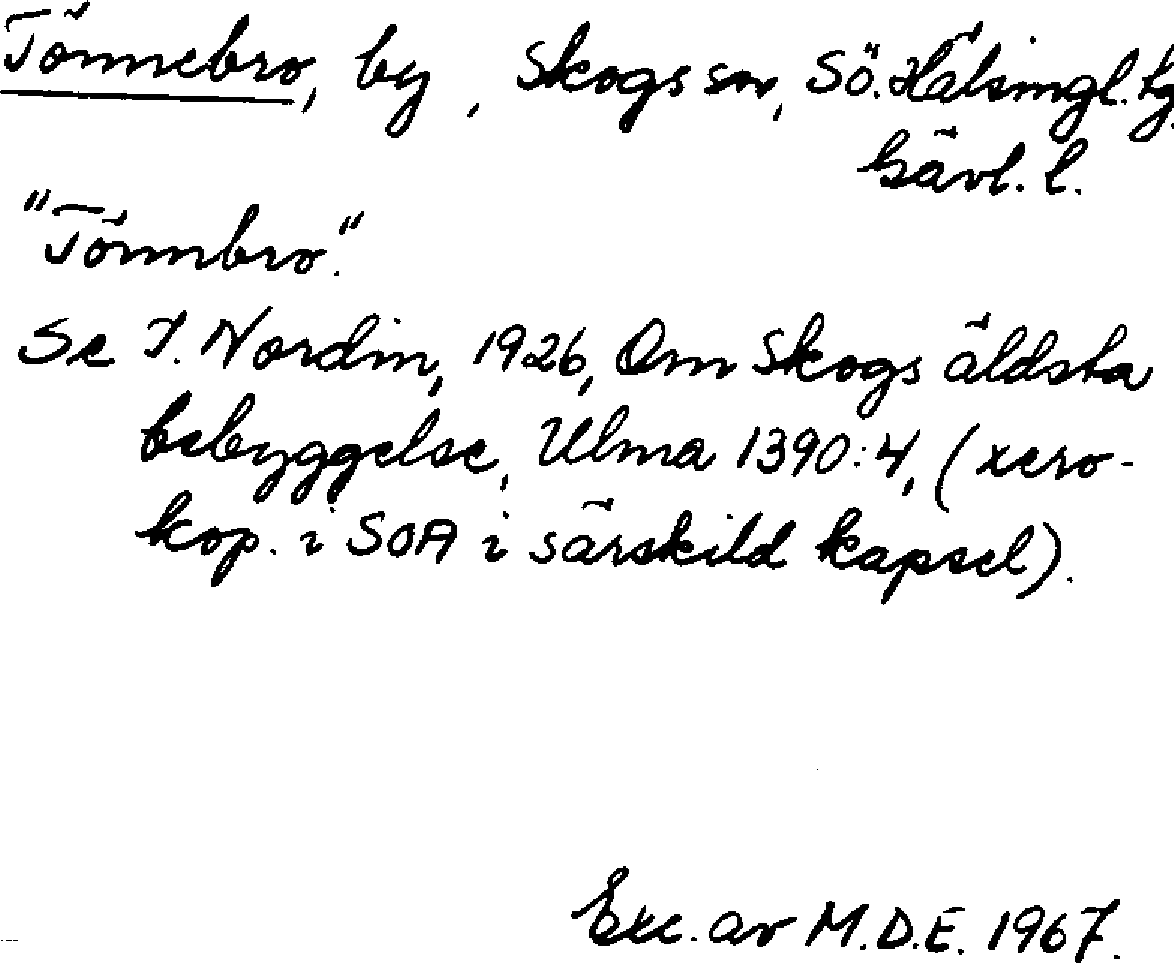 Tönnebro, by, Skogs sn, Sö. Hälsingl. tg.
Gävl. l.
"Tönnbro."
Se I. Nordin, 1926, Om Skogs äldsta
bebyggelse, Ulma 1390:4, (xero-
kop. i SOA i särskild kapsel).
Exc. av M.D.E. 1967.